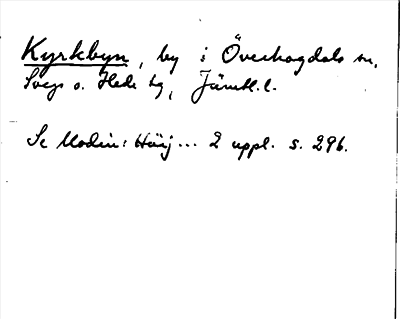 Kyrkbyn, by i Överhogdals sn,
Svegs o. Hede tg, Jämtl. l.
Se Modin: Härj... 2 uppl. s. 296.